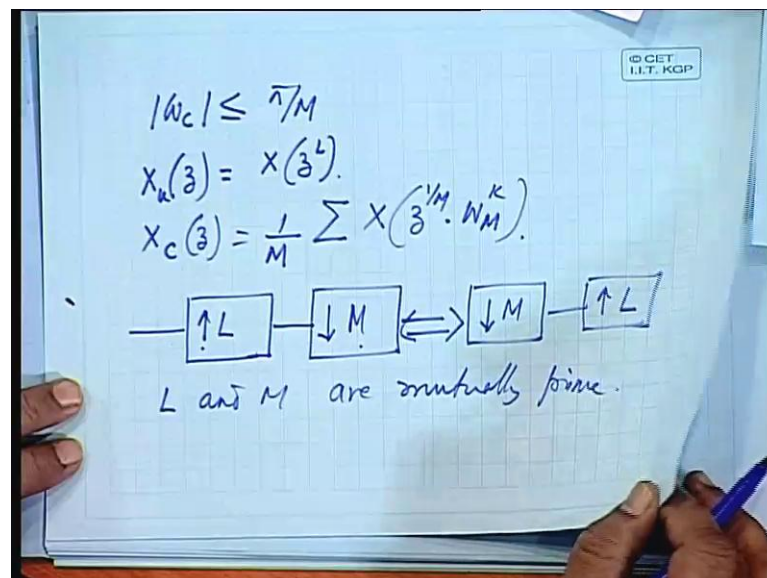 © CET
I.I.T. KGP
|ω_c| ≤ π/M
X_u(z) = X(z^L).
X_c(z) = 1/M Σ X(z^{1/M} · W_M^K).
↑L ↓M ⇔ ↓M ↑L
L and M are mutually prime.